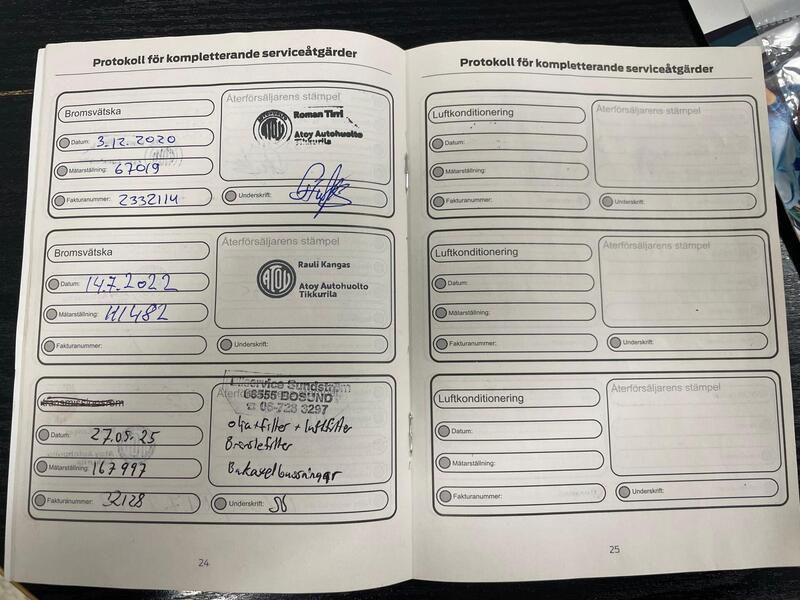 Protokoll för kompletterande serviceåtgärder
Bromsvätska
Återförsäljarens stämpel
Roman Tirri
Atoy Autohuolto
Tikkurila
Datum: 3.12.2020
Mätarställning: 67019
Fakturanummer: 2332114
Underskrift:
Bromsvätska
Återförsäljarens stämpel
ATOY
Rauli Kangas
Atoy Autohuolto
Tikkurila
Datum: 14.7.2022
Mätarställning: 111482
Fakturanummer:
Underskrift:
Bilservice Sundström
68555 BOSUND
☎ 06-728 3297
olja+filter + luftfilter
Bränslefilter
Bakaxelbussningar
Datum: 27.05.25
Mätarställning: 167997
Fakturanummer: 32128
Underskrift:
24
Protokoll för kompletterande serviceåtgärder
Luftkonditionering
Återförsäljarens stämpel
Datum:
Mätarställning:
Fakturanummer:
Underskrift:
Luftkonditionering
Återförsäljarens stämpel
Datum:
Mätarställning:
Fakturanummer:
Underskrift:
Luftkonditionering
Återförsäljarens stämpel
Datum:
Mätarställning:
Fakturanummer:
Underskrift:
25